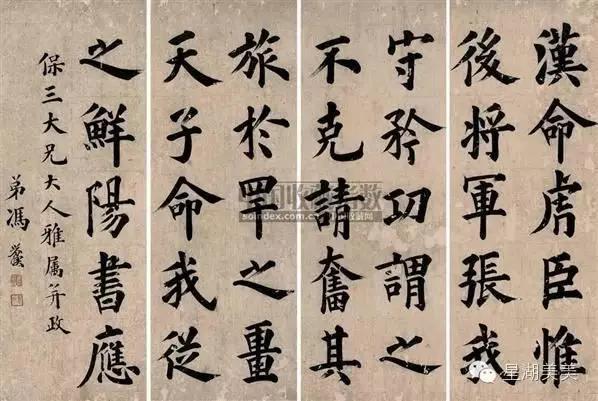 漢命虎臣惟
後將軍張我
守矜功謂之
不克請奮其
旅於罕之畺
天子命我從
之鮮陽書應
保三大兄大人雅属并政
弟馮
soindex.com
星湖美美